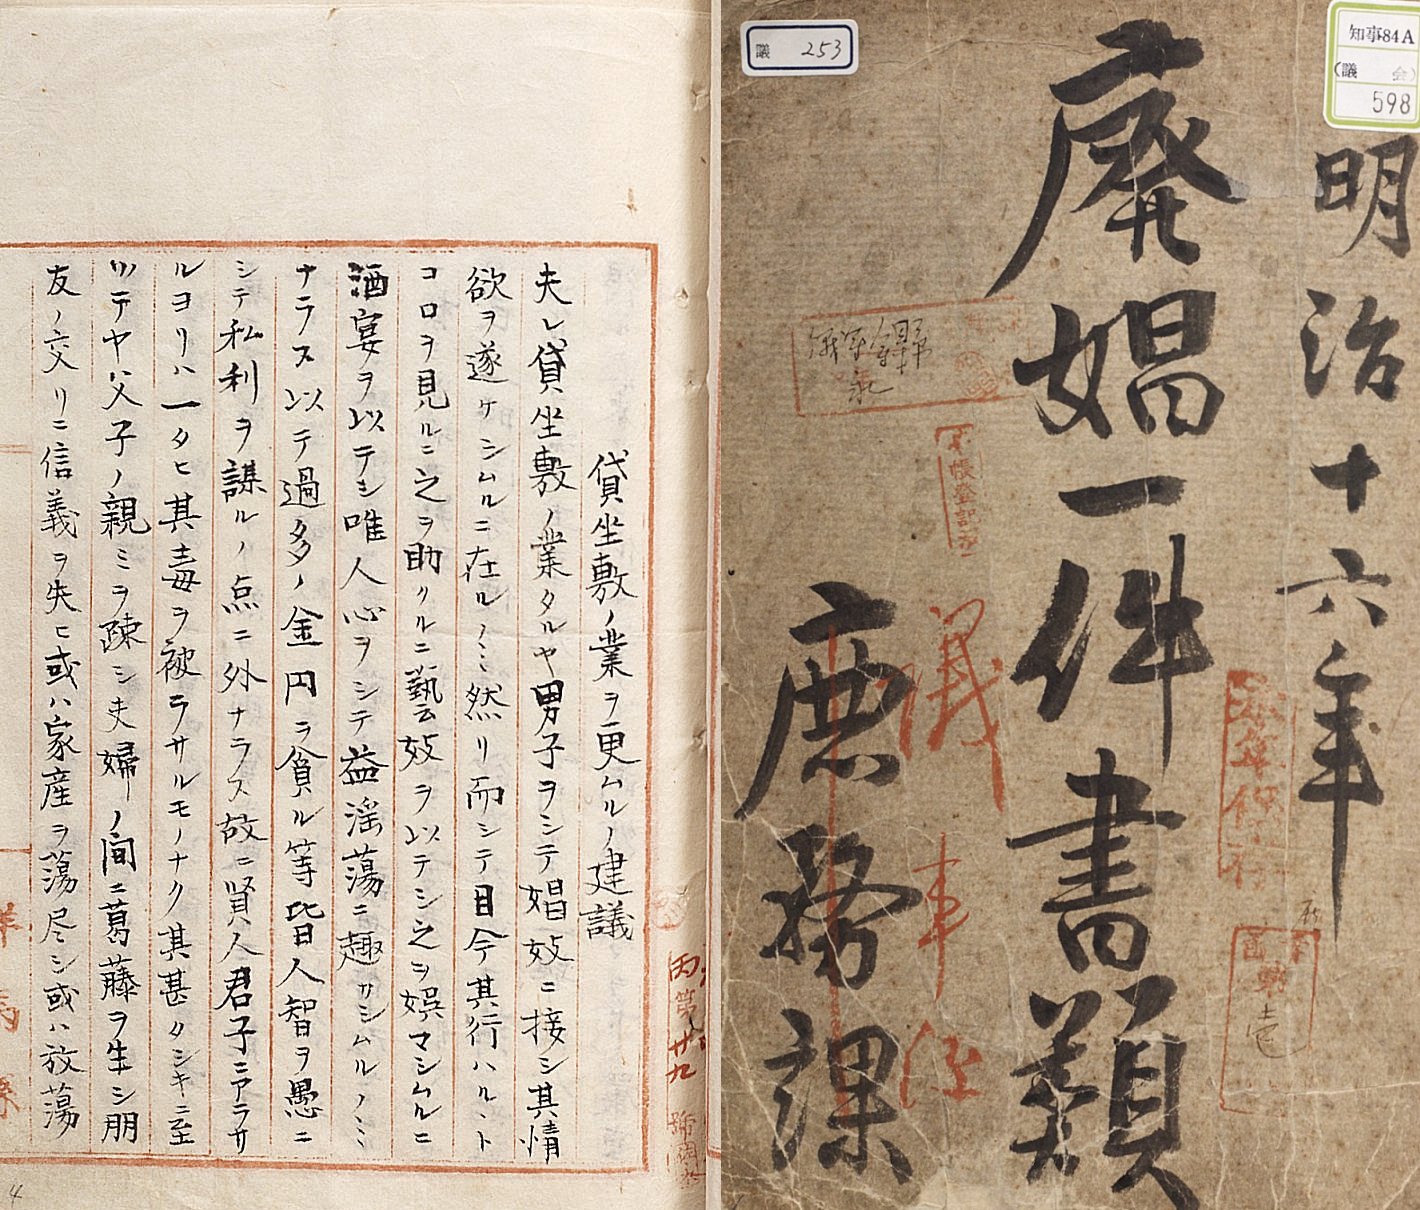 議 253
知事84A
(議 会)
598
明治十六年
廃娼一件書類
庶務課
帳登記
議事
貸坐敷ノ業ヲ更ムルノ建議
夫レ貸坐敷ノ業タルヤ男子ヲシテ娼妓ニ接シ其情
欲ヲ遂ケシムルニ在ルノミ然リ而シテ目今其行ハルヽト
コロヲ見ルニ之ヲ助クルニ藝妓ヲ以テシ之ヲ娯マシムルニ
酒宴ヲ以テシ唯人心ヲシテ益淫蕩ニ趣カシムルノミ
ナラス以テ過多ノ金円ヲ貪ル等皆人智ヲ愚ニ
シテ私利ヲ謀ルノ点ニ外ナラス故ニ賢人君子ニアラサ
ルヨリハ一タヒ其毒ヲ被ラサルモノナク其甚タシキニ至
ツテヤハ父子ノ親ミヲ疎シ夫婦ノ間ニ葛藤ヲ生シ朋
友ノ交リニ信義ヲ失ヒ或ハ家産ヲ蕩尽シ或ハ放蕩
丙第廿九号
4